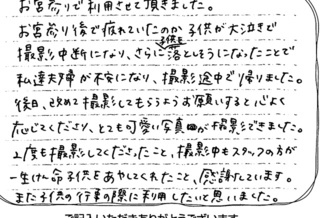 お宮参りで利用させて頂きました。
お宮参り後で疲れていたのか子供が大泣きで
撮影中断になり、さらに子供を落としそうになったことで
私達夫婦が不安になり、撮影途中で帰りました。
後日、改めて撮影してもらうようお願いすると心よく
応じてくださり、とても可愛い写真が撮影できました。
2度も撮影してくださったこと、撮影中もスタッフの方が
一生けん命子供をあやしてくれたこと、感謝しています。
また子供の行事の際に利用したいと思いました。
ご記入いただきありがとうございます